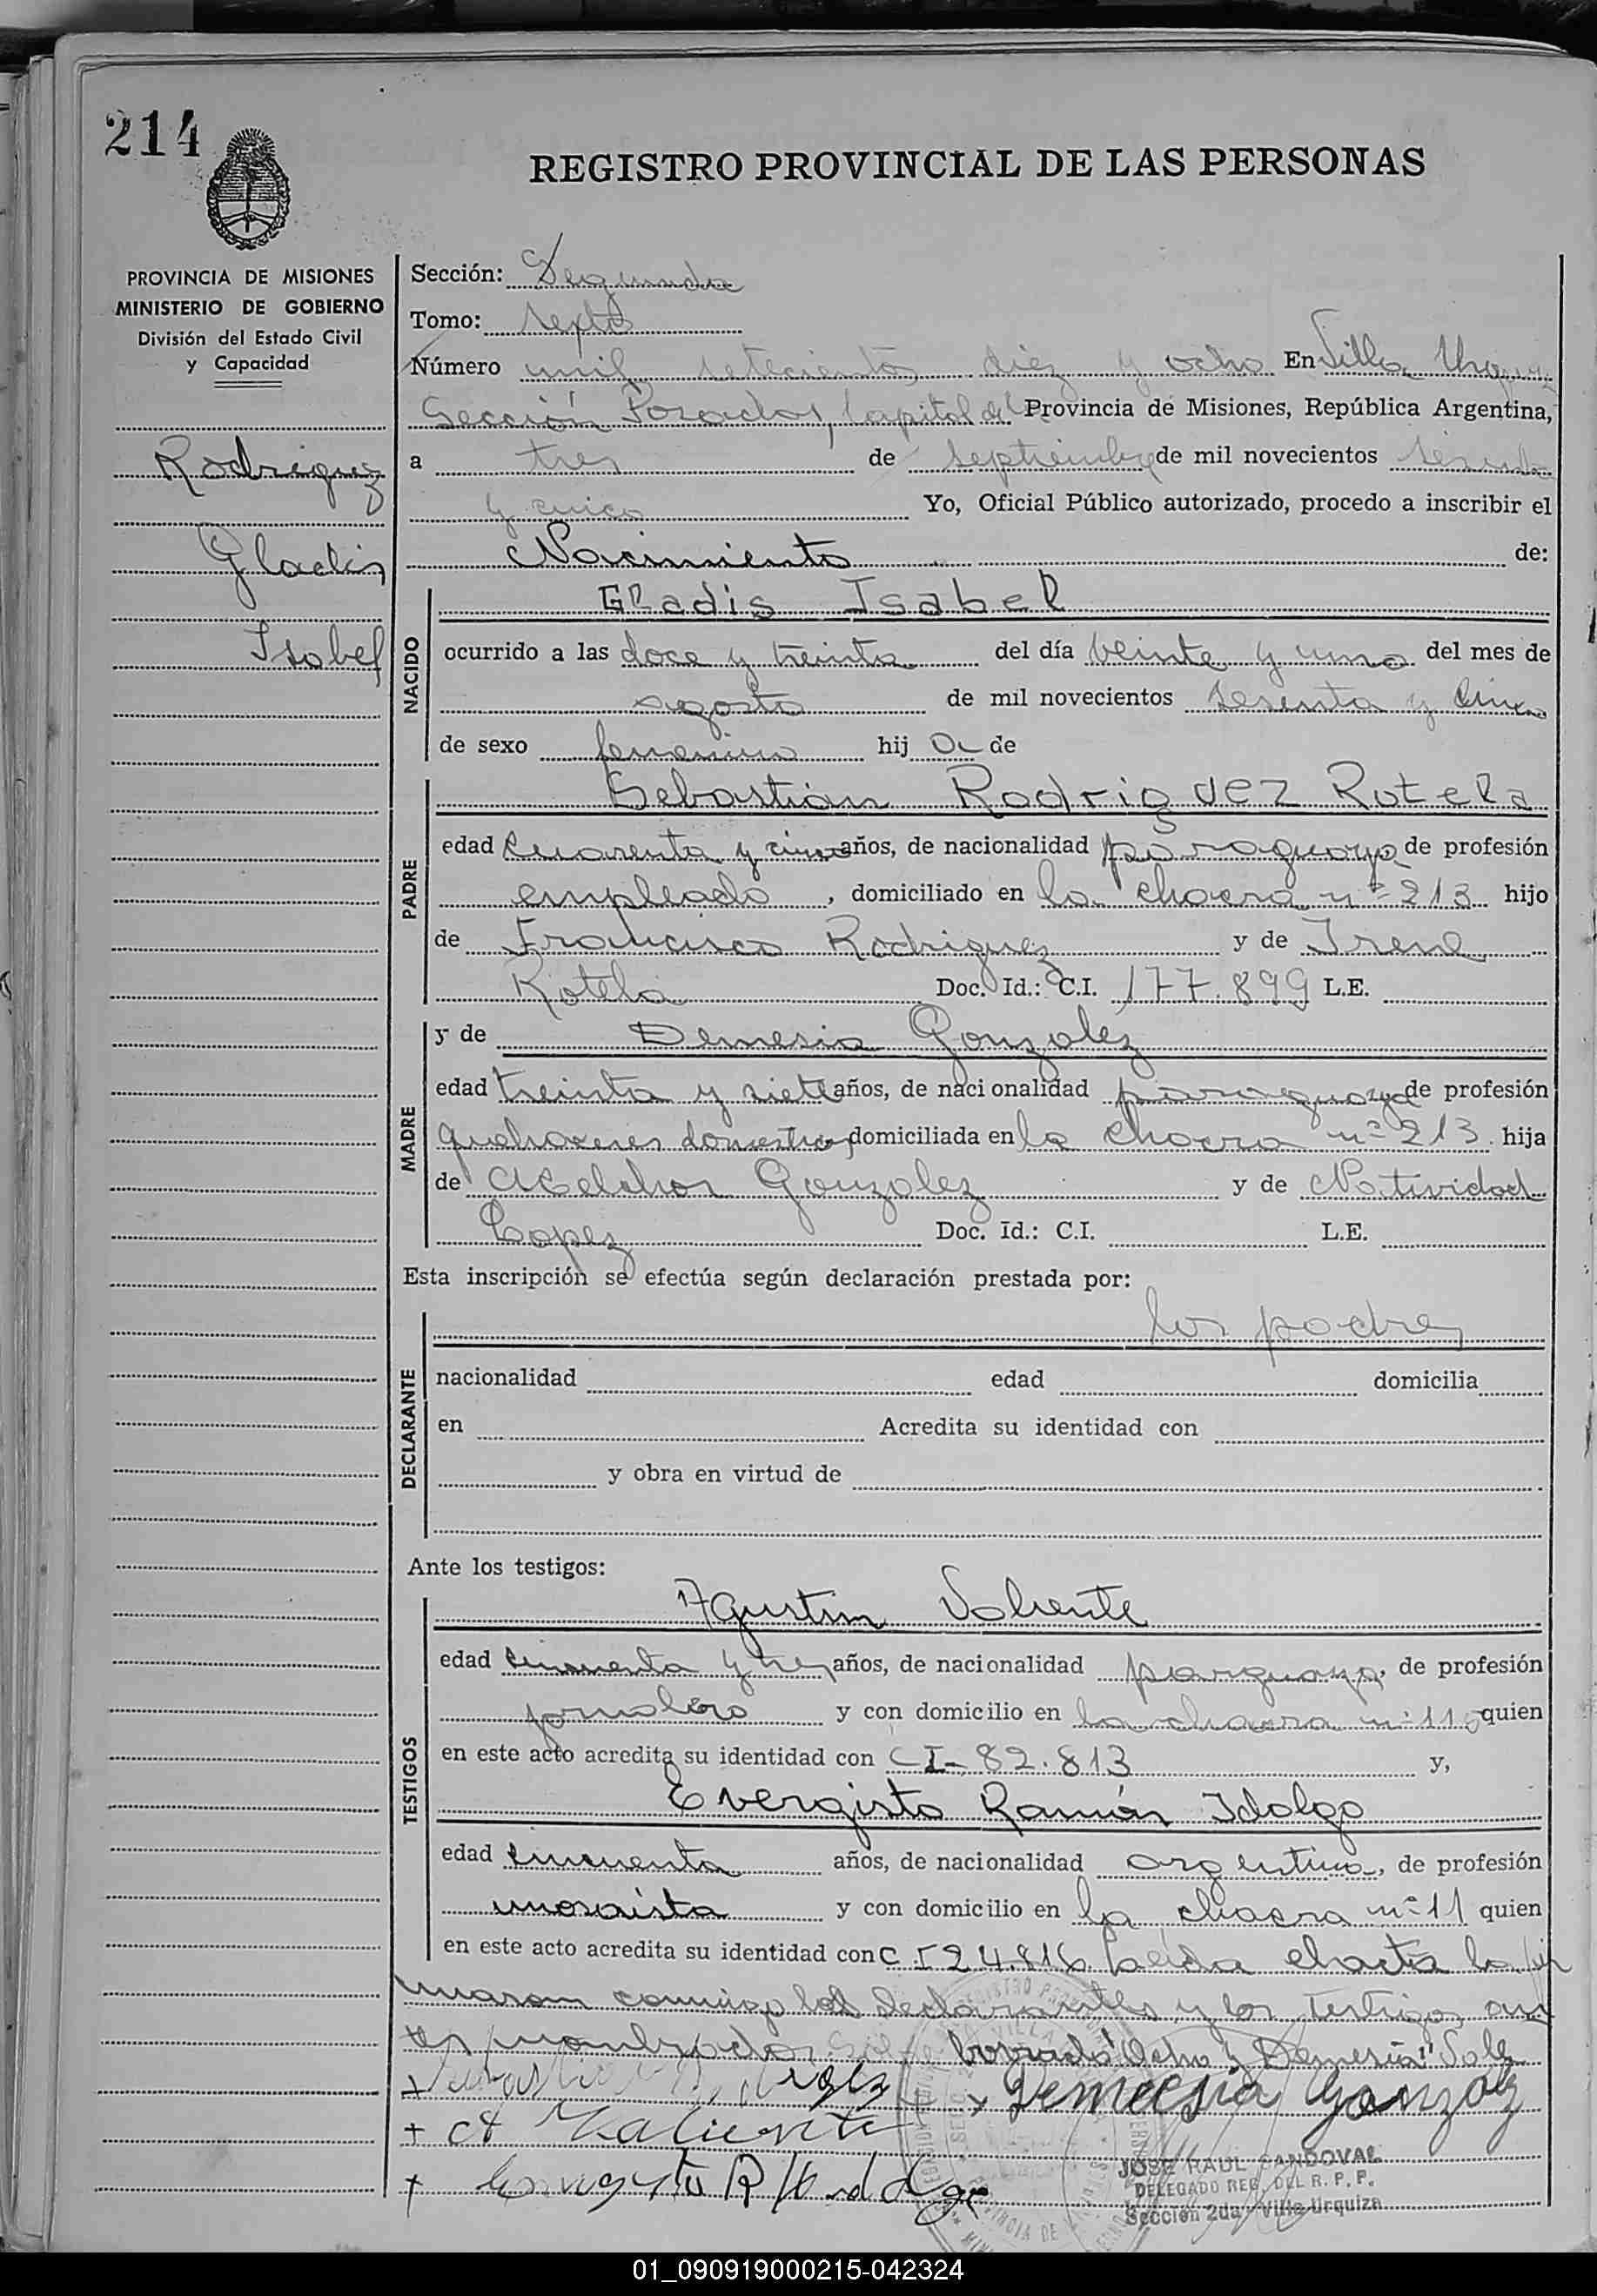 214
REGISTRO PROVINCIAL DE LAS PERSONAS
PROVINCIA DE MISIONES
MINISTERIO DE GOBIERNO
División del Estado Civil
y Capacidad
Rodriguez
Gladis
Isabel
Sección: Segunda
Tomo: sexto
Número mil setecientos diez y ocho En Villa Urquiza
Sección Posadas, Capital de la Provincia de Misiones, República Argentina,
a tres de septiembre de mil novecientos sesenta
y cinco Yo, Oficial Público autorizado, procedo a inscribir el
Nacimiento de:
NACIDO
Gladis Isabel
ocurrido a las doce y treinta del día veinte y uno del mes de
agosto de mil novecientos sesenta y cinco
de sexo femenino hij a de
PADRE
Sebastian Rodriguez Rotela
edad cuarenta y cinco años, de nacionalidad paraguaya de profesión
empleado, domiciliado en la chacra nº 213 hijo
de Francisco Rodriguez y de Irene
Rotela Doc. Id.: C.I. 177.899 L.E.
MADRE
y de Demesia Gonzalez
edad treinta y siete años, de nacionalidad paraguaya de profesión
quehaceres domesticos domiciliada en la chacra nº 213 hija
de Melchor Gonzalez y de Natividad
Lopez Doc. Id.: C.I. L.E.
Esta inscripción se efectúa según declaración prestada por:
DECLARANTE
los padres
nacionalidad edad domicilia
en Acredita su identidad con
y obra en virtud de
Ante los testigos:
TESTIGOS
Agustin Valiente
edad cincuenta y tres años, de nacionalidad paraguaya, de profesión
jornalero y con domicilio en la chacra nº 110 quien
en este acto acredita su identidad con C I - 82.813 y,
Evergisto Ramón Idalgo
edad cincuenta años, de nacionalidad argentina, de profesión
mosaista y con domicilio en la chacra nº 11 quien
en este acto acredita su identidad con C I 24.816 Leida el acta la fir
maron conmigo los declarantes y los testigos an
tes nombrados borrado "Ocho" y "Demesia" Vale
+ x Demecsia Gonzalez
+ A Valiente
+ R
JOSE RAUL SANDOVAL
DELEGADO REG. DEL R. P. P.
Sección 2da - Villa Urquiza
01_090919000215-042324